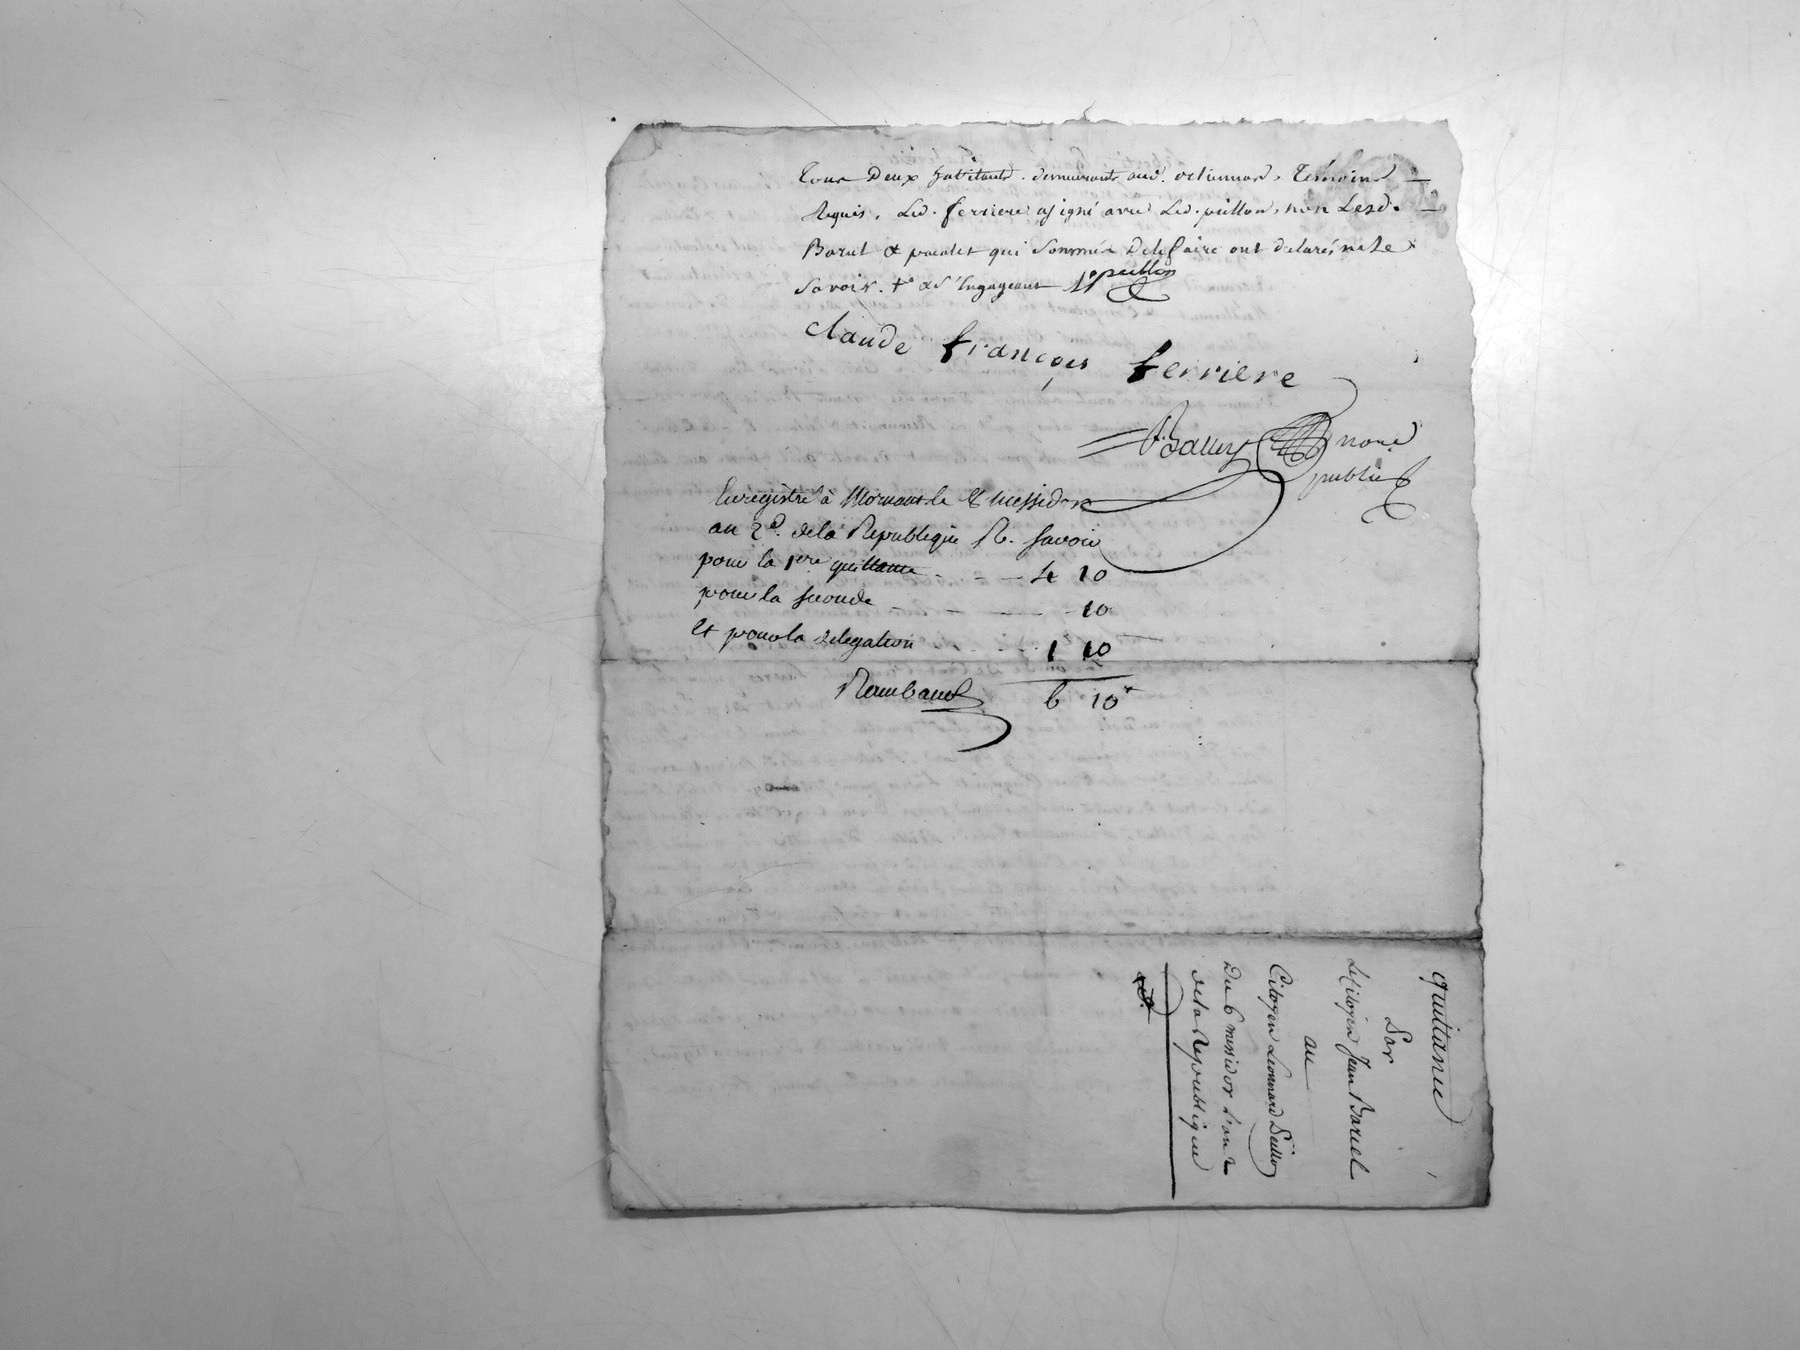 tous deux habitants demeurants aud. . témoins
Requis. Led. ferriere a signé avec Led. peillon, non Lesd.
Barrel & poulet qui sommés De le faire ont déclaré ne le
savoir. & s'Engageant peillon
claude françois ferriere
Balley nore
public
Enregistré à Mornant le 8 messidor
an 2d. de la Republique R. savoir
pour la 1ere quittance - - - 4 10
pour la seconde - - - - 10
Et pour la delegation - - 1 10
Rambaud 6 10s
quittance
Par
Le Citoyen Jean Barrel
au
Citoyen Leonnard Peillon
Du 6 messidor L'an 2
de la Republique